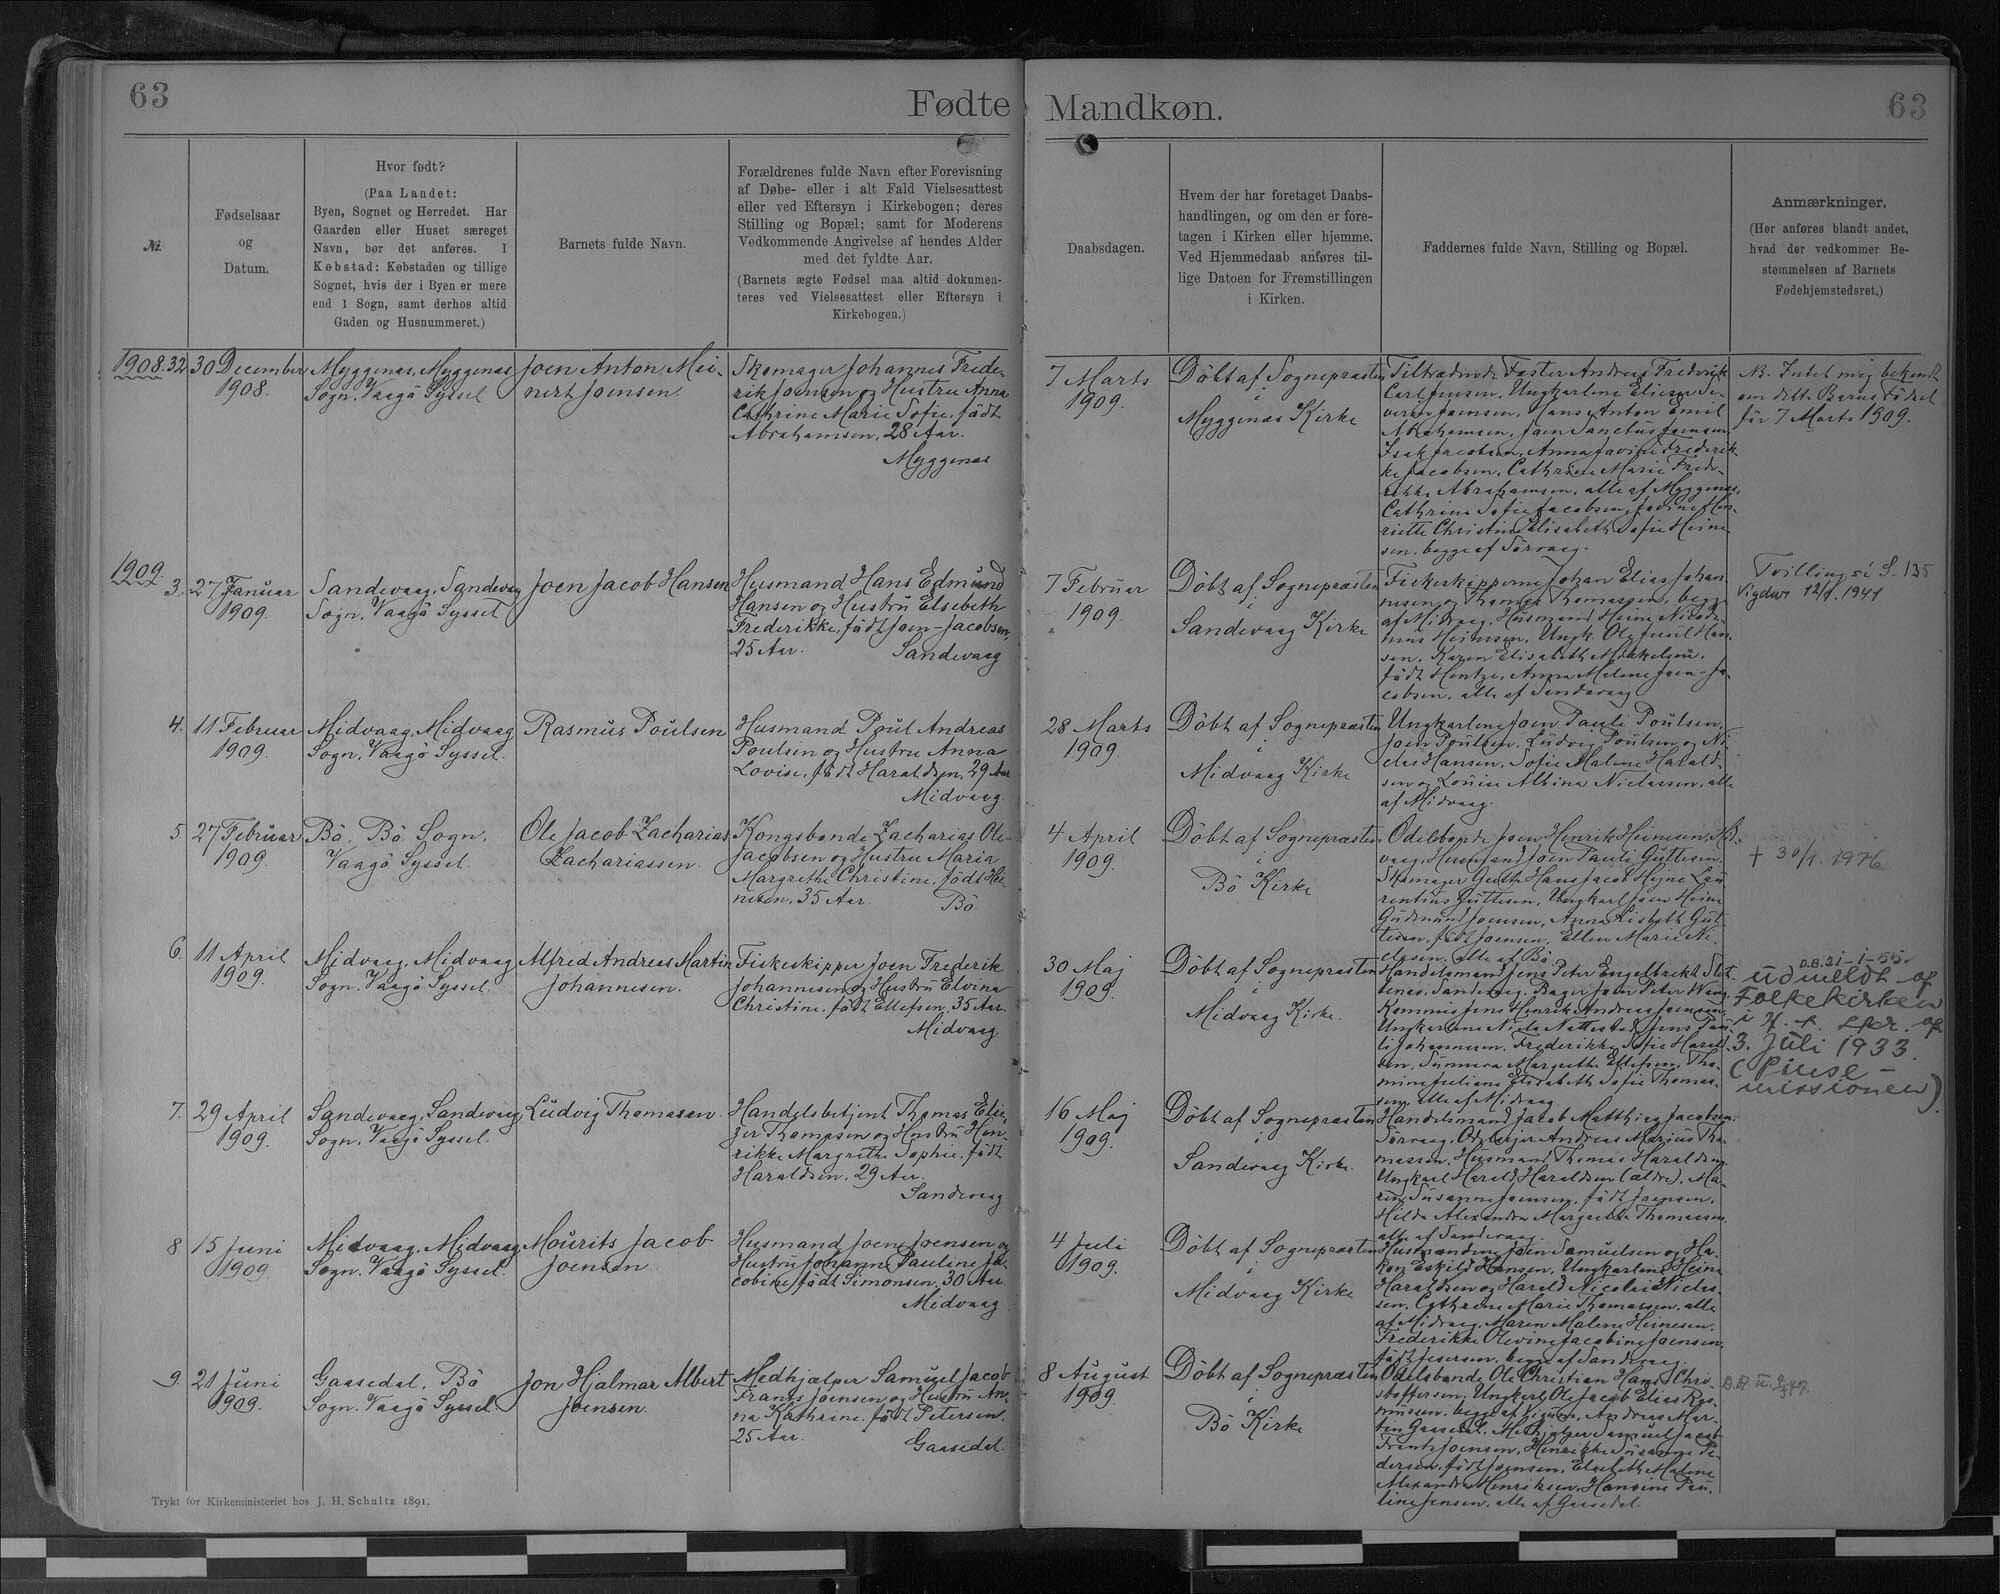 63
Fødte
Mandkøn.
63
Nr.
Fødselsaar
og
Datum.
Hvor født?
(Paa Landet:
Byen, Sognet og Herredet. Har
Gaarden eller Huset særeget
Navn, bør det anføres. I
Købstad: Købstaden og tillige
Sognet, hvis der i Byen er mere
end 1 Sogn, samt derhos altid
Gaden og Husnummeret.)
Barnets fulde Navn.
Forældrenes fulde Navn efter Forevisning
af Døbe- eller i alt Fald Vielsesattest
eller ved Eftersyn i Kirkebogen; deres
Stilling og Bopæl; samt for Moderens
Vedkommende Angivelse af hendes Alder
med det fyldte Aar.
(Barnets ægte Fødsel maa altid dokumen-
teres ved Vielsesattest eller Eftersyn i
Kirkebogen.)
Daabsdagen.
Hvem der har foretaget Daabs-
handlingen, og om den er fore-
tagen i Kirken eller hjemme.
Ved Hjemmedaab anføres til-
lige Datoen for Fremstillingen
i Kirken.
Faddernes fulde Navn, Stilling og Bopæl.
Anmærkninger.
(Her anføres blandt andet,
hvad der vedkommer Be-
stemmelsen af Barnets
Fødehjemstedsret.)
1908. 32
30 December
1908.
Myggenæs, Myggenæs
Sogn, Vaagø Syssel
Joen Anton Mei-
nert Joensen
Skomager Johannes Frede-
rik Joensen og Hustru Anna
Cathrine Marie Sofie, født
Abrahamsen, 28 Aar.
Myggenæs
7 Marts
1909.
Döbt af Sognepræsten
i
Myggenæs Kirke
Andreas Frederik
Carl Jensen, Ungkarlene
Joensen, Hans Anton Emil
Abrahamsen, Joen Sanctus Joensen
Isak Jacobsen, Anna
Jacobsen, Cathrine Marie Frede-
rikke Abrahamsen, alle af Myggenæs,
Cathrine Sofie Jacobsen
Christine Elisabeth Sofie Heine-
sen, begge af Sörvaag.
NB. Intet mig bekendt
om dette Barns Födsel
för 7 Marts 1909.
1909.
3.
27 Januar
1909.
Sandevaag, Sandevaag
Sogn, Vaagø Syssel
Joen Jacob Hansen
Husmand Hans Edmund
Hansen og Hustru Elsebeth
Frederikke, født Joen-Jacobsen
25 Aar.
Sandevaag
7 Februar
1909.
Döbt af Sognepræsten
i
Sandevaag Kirke
Fiskeskipperne Johan Elias Johan-
nesen og Thomas Thomassen, begge
af Midvaag, Husmand Heine Nicode-
mus Heinesen, Ungk. Ole Juul Han-
sen, Karen Elisabeth Mikkelsen,
født Hentze, Anna Malene Joen-Ja-
cobsen, alle af Sandevaag
Tvilling si S. 135
Vigdur 12/1. 1941
4.
11 Februar
1909.
Midvaag, Midvaag
Sogn, Vaagø Syssel.
Rasmus Poulsen
Husmand Poul Andreas
Poulsen og Hustru Anna
Lovise, født Haraldsen, 29 Aar
Midvaag.
28 Marts
1909.
Döbt af Sognepræsten
i
Midvaag Kirke
Ungkarlene Joen Pauli Poulsen,
Joen Poulsen, Ludvig Poulsen og Ni-
clas Hansen, Sofie Malene Harald-
sen og Louise Albina Niclassen, alle
af Midvaag.
5
27 Februar
1909.
Bö, Bö Sogn,
Vaagø Syssel.
Ole Jacob Zacharias
Zachariassen.
Kongsbonde Zacharias Ole-
Jacobsen og Hustru Maria
Margrethe Christine, født Hei-
nesen, 35 Aar.
Bö.
4 April
1909.
Döbt af Sognepræsten
i
Bö Kirke
Odelsbonde Joen Henrik Heinesen, Mid-
vaag, Husmand Joen Pauli Guttesen,
Skomager Hans Jacob Hejne Lau-
rentius Guttesen, Ungkarl Joen Heine
Gudmund Joensen, Anna Lisbeth Gut-
tesen, født Joensen, Ellen Marie Ni-
clasen, alle af Bö.
† 30/1. 1976
6.
11 April
1909.
Midvaag, Midvaag
Sogn, Vaagø Syssel.
Alfred Andreas Martin
Johannesen.
Fiskeskipper Joen Frederik
Johannesen og Hustru Elvina
Christine, født Ellefsen, 35 Aar.
Midvaag
30 Maj
1909.
Döbt af Sognepræsten
i
Midvaag Kirke.
Handelsmand Jens Peter Engelbrekt
Sandevaag, Bager Joen Peter
Jens Henrik Andreas Joensen,
Ungkarlene Niels Nattestad, Jens Pau-
li Johannesen, Frederikke Sofie Harald-
sen, Sunneva Margrethe Ellefsen, Tho-
mine Juliane Elisabeth Sofie Thomas-
sen, alle af Midvaag
D.B. 21-1-55.
udmeldt af
Folkekirken
i H. t. Skr. af
3. Juli 1933.
(Pinse-
missionen).
7.
29 April
1909.
Sandevaag, Sandevaag
Sogn, Vaagø Syssel.
Ludvig Thomasen.
Handelsbetjent Thomas Elie-
zer Thomsen og Hustru Hen-
rikke Margrethe Sophie, født
Haraldsen, 29 Aar.
Sandevaag
16 Maj
1909.
Döbt af Sognepræsten
i
Sandevaag Kirke.
Handelsmand Jacob Matthias Jacobsen
Sörvaag, Andreas Marius Tho-
massen, Husmand Thomas Haraldsen
Ungkarl Harald Haraldsen (ældre), Ma-
ren Susanne Joensen, født Joensen,
Hilda Alexandra Margrethe Thomassen
alle af Sandevaag.
8
15 Juni
1909.
Midvaag, Midvaag
Sogn, Vaagø Syssel.
Mourits Jacob
Joensen
Husmand Joen Joensen og
Hustru Johanne Pauline Ja-
cobine, født Simonsen, 30 Aar.
Midvaag
4 Juli
1909.
Döbt af Sognepræsten
i
Midvaag Kirke
Husmændene Joen Samuelsen og Ha-
kon Eskild Hansen, Ungkarlene Heine
Haraldsen og Harald Nicolai Niclas-
sen, Cathrine Marie Thomassen, alle
af Midvaag, Maren Malene Heinesen,
Frederikke Olevine Jacobine Joensen,
født Jesersen, begge af Sandevaag.
9.
21 Juni
1909.
Gaasedal, Bö
Sogn, Vaagø Syssel.
Jon Hjalmar Albert
Joensen.
Medhjælper Samuel Jacob
Frants Joensen og Hustru An-
na Kathrine, født Petersen
25 Aar.
Gaasedal.
8 August
1909.
Döbt af Sognepræsten
i
Bö Kirke
Odelsbonde Ole Christian Hans Chri-
stoffersen, Ungkarl Ole Jacob Elias Ras-
mussen, begge af Andreas Mar-
tin Gaasedal, Medhjælper Samuel Jacob
Frants Joensen, Henrikke Susanne Pe-
dersen, født Joensen, Elsebeth Malene
Alexandra Henriksen, Hansine Pau-
line Jensen, alle af Gaasedal.
Trykt for Kirkeministeriet hos J. H. Schultz 1891.